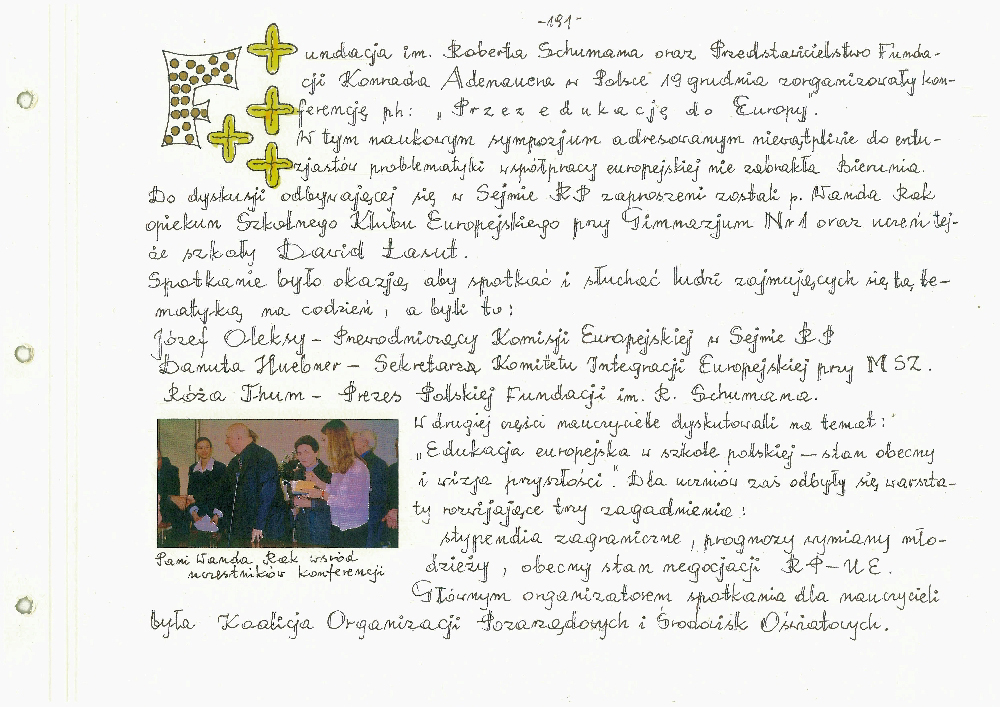 -191-
Fundacja im. Roberta Schumana oraz Przedstawicielstwo Funda-
cji Konrada Adenauera w Polsce 19 grudnia zorganizowały kon-
ferencję ph: „Przez edukację do Europy".
W tym naukowym sympozjum adresowanym niewątpliwie do entu-
zjastów problematyki współpracy europejskiej nie zabrakło Bierunia.
Do dyskusji odbywającej się w Sejmie RP zaproszeni zostali p. Wanda Rak
opiekun Szkolnego Klubu Europejskiego przy Gimmazjum Nr 1 oraz uczeń tej-
że szkoły Dawid Łasut.
Spotkanie było okazją, aby spotkać i słuchać ludzi zajmujących się tą te-
matyką na codzień, a byli to:
Józef Oleksy – Przewodniczący Komisji Europejskiej w Sejmie RP
Danuta Huebner – Sekretarz Komitetu Integracji Europejskiej przy MSZ.
Róża Thum – Prezes Polskiej Fundacji im. R. Schumana.
W drugiej części nauczyciele dyskutowali na temat:
„Edukacja europejska w szkole polskiej – stan obecny
i wizja przyszłości". Dla uczniów zaś odbyły się warszta-
ty rozwijające trzy zagadnienia:
stypendia zagraniczne, prognozy wymiany mło-
dzieży, obecny stan negocjacji RP-UE.
Głównym organizatorem spotkania dla nauczycieli
była Koalicja Organizacji Pozarządowych i Środowisk Oświatowych.
Pani Wanda Rak wśród
uczestników konferencji